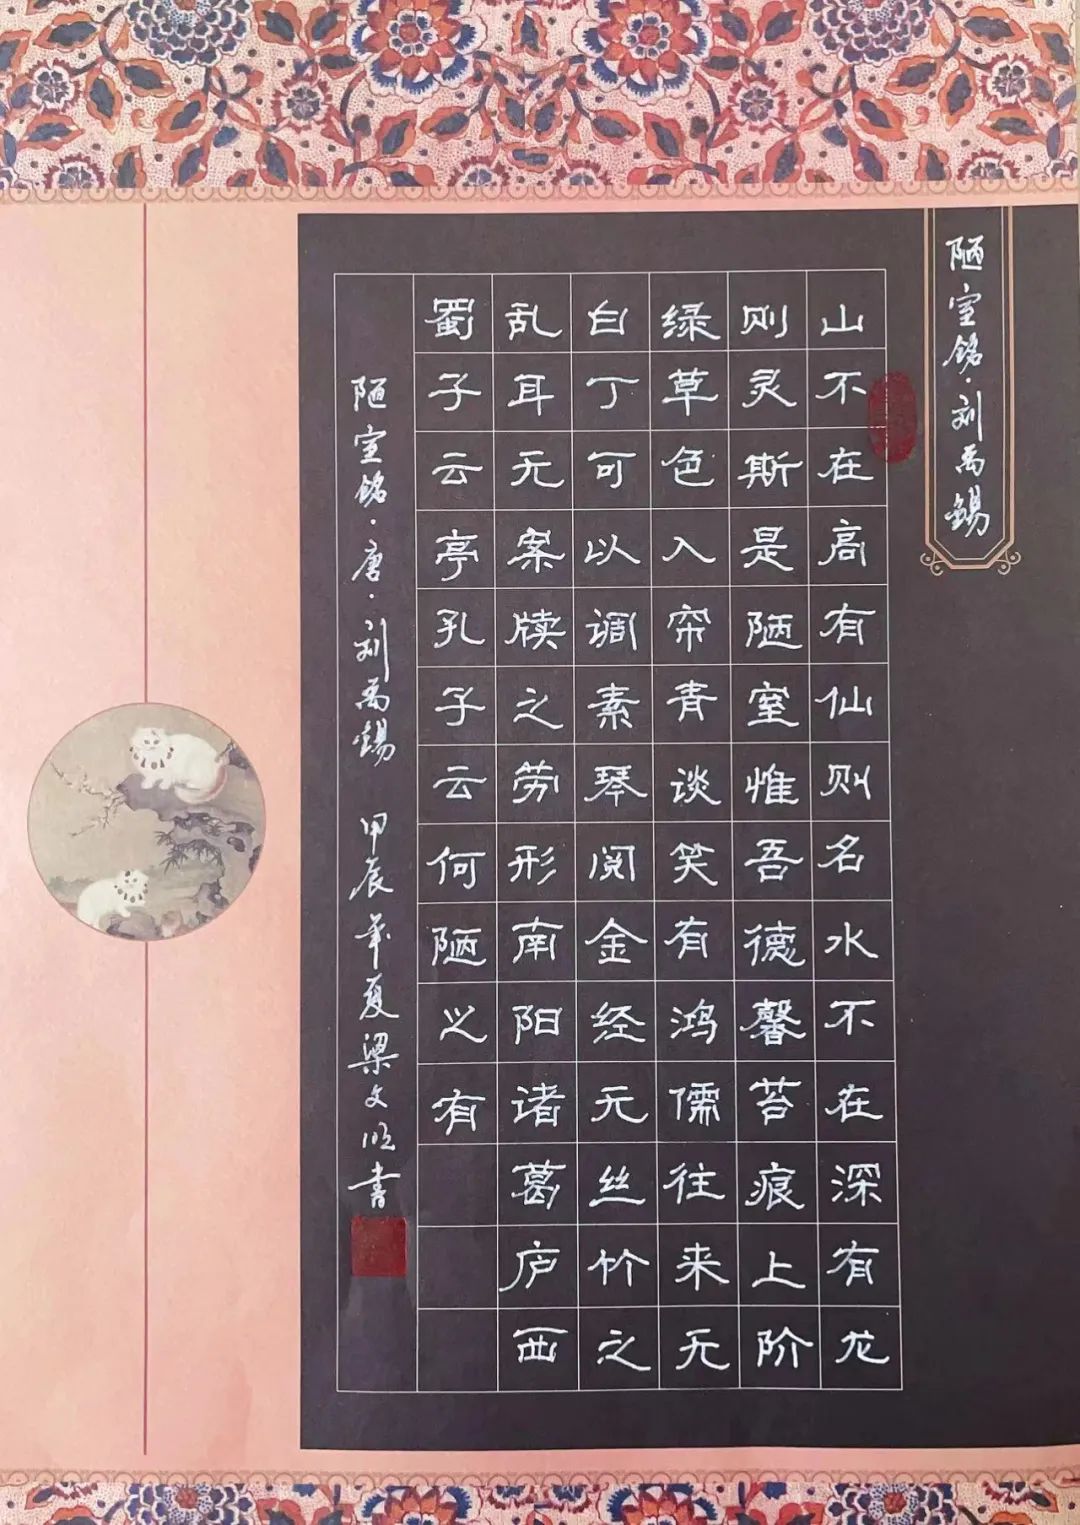 陋室铭·刘禹锡
山不在高有仙则名水不在深有龙
则灵斯是陋室惟吾德馨苔痕上阶
绿草色入帘青谈笑有鸿儒往来无
白丁可以调素琴阅金经无丝竹之
乱耳无案牍之劳形南阳诸葛庐西
蜀子云亭孔子云何陋之有
陋室铭·唐·刘禹锡 甲辰年夏梁文顺书